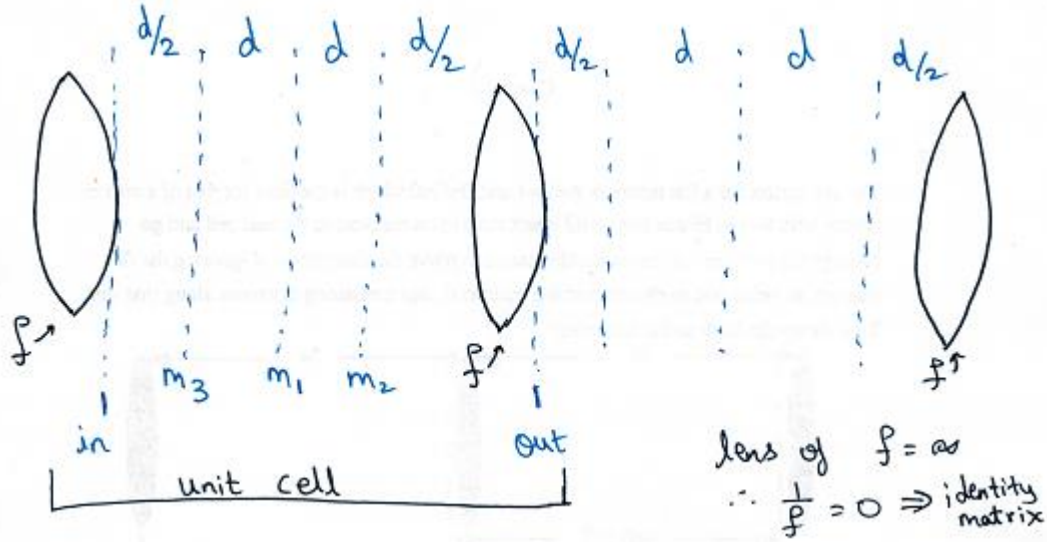 d/2 d d d/2 d/2 d d d/2
f f f
m3 m1 m2
in out
unit cell
lens of f = ∞
∴ 1/f = 0 ⇒ identity matrix